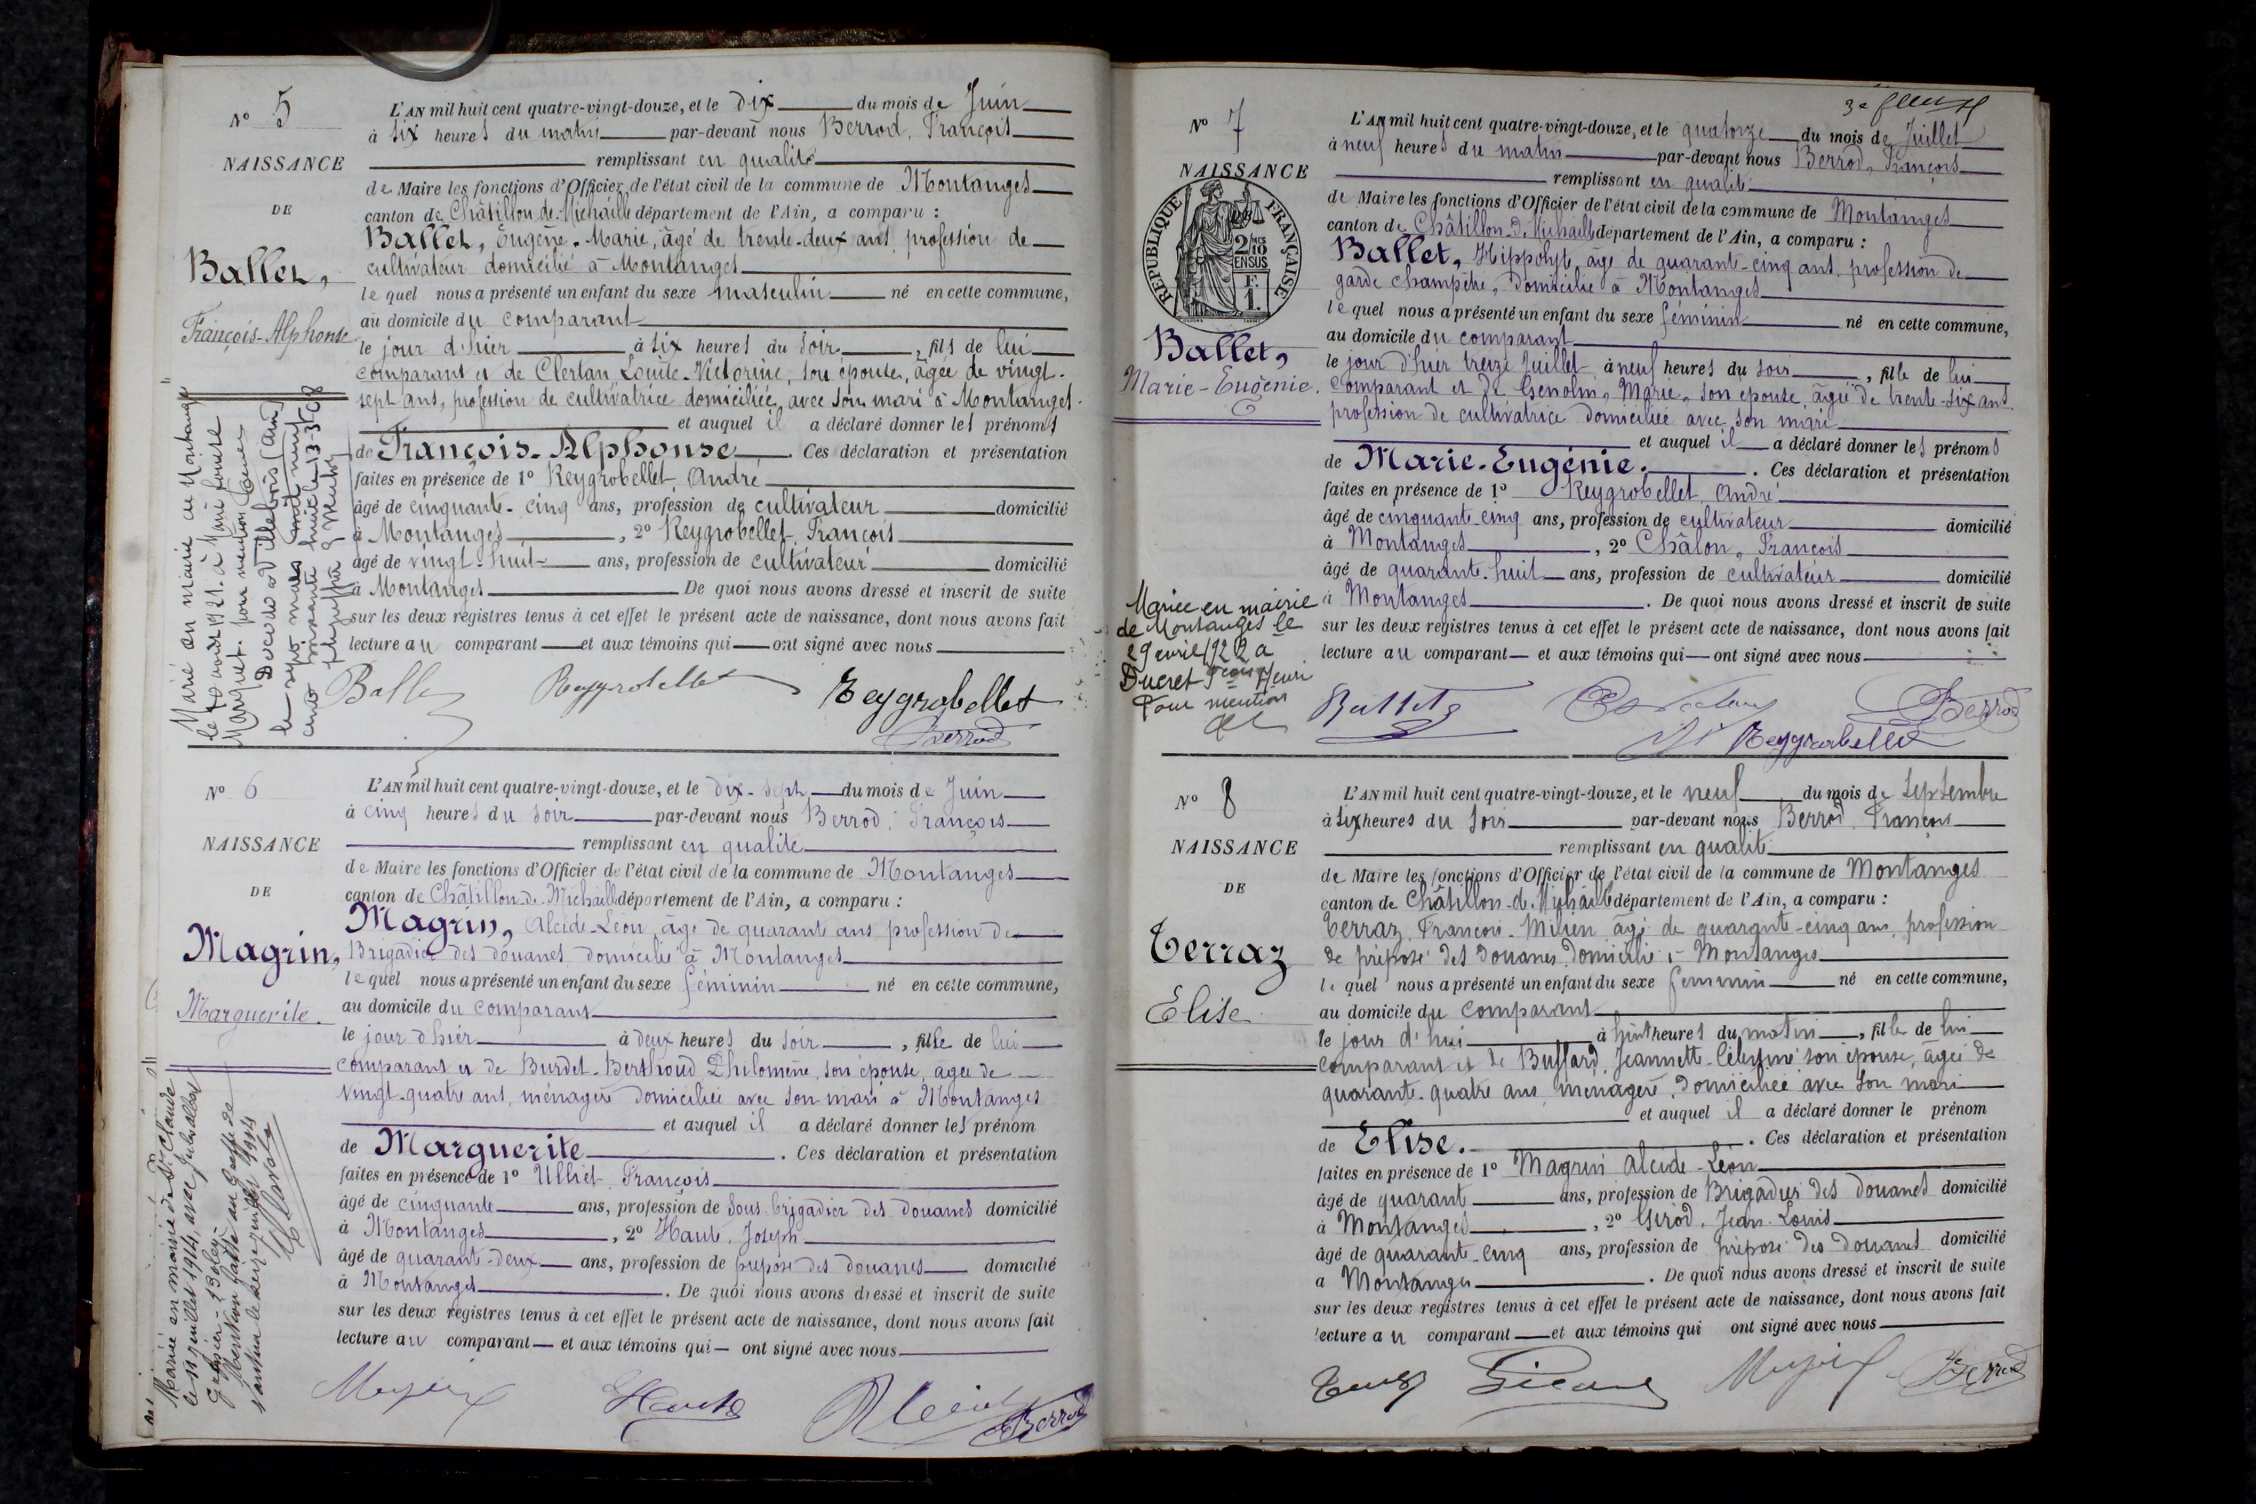 N° 5
NAISSANCE
DE
Ballet,
François-Alphonse
L'AN mil huit cent quatre-vingt-douze, et le dix du mois de Juin
à six heures du matin par-devant nous Berrod, François
remplissant en qualité
de Maire les fonctions d'Officier de l'état civil de la commune de Montanges
canton de Châtillon-de-Michaille département de l'Ain, a comparu :
Ballet, Eugène-Marie, âgé de trente-deux ans, profession de
cultivateur domicilié à Montanges
lequel nous a présenté un enfant du sexe masculin né en cette commune,
au domicile du comparant
le jour d'hier à six heures du soir, fils de lui
comparant et de Clertan Louise-Victorine, son épouse, âgée de vingt-
sept ans, profession de cultivatrice domiciliée avec son mari à Montanges.
et auquel il a déclaré donner les prénoms
de François-Alphonse. Ces déclaration et présentation
faites en présence de 1° Reygrobellet, André
âgé de cinquante-cinq ans, profession de cultivateur domicilié
à Montanges, 2° Reygrobellet, François
âgé de vingt-huit ans, profession de cultivateur domicilié
à Montanges De quoi nous avons dressé et inscrit de suite
sur les deux registres tenus à cet effet le présent acte de naissance, dont nous avons fait
lecture au comparant et aux témoins qui ont signé avec nous
Marié en mairie de Montanges
1921 à
Marquet. pour mention
Décédé à
mars mil neuf
cent soixante huit le 13-3-68
Ballet Reygrobellet Reygrobellet
Berrod
N° 6
NAISSANCE
DE
Magrin,
Marguerite.
L'AN mil huit cent quatre-vingt-douze, et le dix-sept du mois de Juin
à cinq heures du soir par-devant nous Berrod, François
remplissant en qualité
de Maire les fonctions d'Officier de l'état civil de la commune de Montanges
canton de Châtillon-de-Michaille département de l'Ain, a comparu :
Magrin, Alcide-Léon, âgé de quarante ans profession de
Brigadier des douanes domicilié à Montanges
lequel nous a présenté un enfant du sexe féminin né en cette commune,
au domicile du comparant
le jour d'hier à deux heures du soir, fille de lui
comparant et de Burdet-Berthoud Philomène, son épouse, âgée de
vingt-quatre ans, ménagère domiciliée avec son mari à Montanges
et auquel il a déclaré donner les prénom
de Marguerite. Ces déclaration et présentation
faites en présence de 1° Ulliet, François
âgé de cinquante ans, profession de Sous-brigadier des douanes domicilié
à Montanges, 2° Haute, Joseph
âgé de quarante-deux ans, profession de préposé des douanes domicilié
à Montanges. De quoi nous avons dressé et inscrit de suite
sur les deux registres tenus à cet effet le présent acte de naissance, dont nous avons fait
lecture au comparant et aux témoins qui ont signé avec nous
Mariée en mairie de St Claude
le juillet 1914, avec Jules Albert
Mention faite au Greffe de
Nantua le seize juillet 1914
Magrin Haute Berrod
3e feuillet
N° 7
NAISSANCE
DE
RÉPUBLIQUE FRANÇAISE
2/10 EN SUS
F. 1.
Ballet,
Marie-Eugénie.
L'AN mil huit cent quatre-vingt-douze, et le quatorze du mois de Juillet
à neuf heures du matin par-devant nous Berrod, François
remplissant en qualité
de Maire les fonctions d'Officier de l'état civil de la commune de Montanges
canton de Châtillon-de-Michaille département de l'Ain, a comparu :
Ballet, Hippolyte, âgé de quarante-cinq ans, profession de
garde champêtre, domicilié à Montanges
lequel nous a présenté un enfant du sexe féminin né en cette commune,
au domicile du comparant
le jour d'hier treize Juillet à neuf heures du soir, fille de lui
comparant et de Genolin, Marie, son épouse, âgée de trente-six ans
profession de cultivatrice domiciliée avec son mari
et auquel il a déclaré donner les prénoms
de Marie-Eugénie. Ces déclaration et présentation
faites en présence de 1° Reygrobellet, André
âgé de cinquante-cinq ans, profession de cultivateur domicilié
à Montanges, 2° Châlon, François
âgé de quarante-huit ans, profession de cultivateur domicilié
à Montanges. De quoi nous avons dressé et inscrit de suite
sur les deux registres tenus à cet effet le présent acte de naissance, dont nous avons fait
lecture au comparant et aux témoins qui ont signé avec nous
Mariée en mairie
de Montanges le
29 avril 1922 à
Ducret Henri
Pour mention
Ballet Berrod
Reygrobellet
N° 8
NAISSANCE
DE
Terraz
Elise
L'AN mil huit cent quatre-vingt-douze, et le neuf du mois de Septembre
à six heures du soir par-devant nous Berrod, François
remplissant en qualité
de Maire les fonctions d'Officier de l'état civil de la commune de Montanges
canton de Châtillon-de-Michaille département de l'Ain, a comparu :
Terraz, François-Milien âgé de quarante-cinq ans, profession
de préposé des Douanes domicilié à Montanges
lequel nous a présenté un enfant du sexe féminin né en cette commune,
au domicile du comparant
le jour d'hui à huit heures du matin, fille de lui
comparant et de Buffard, Jeannette-Célestine son épouse, âgée de
quarante-quatre ans, ménagère, domiciliée avec son mari
et auquel il a déclaré donner le prénom
de Elise. Ces déclaration et présentation
faites en présence de 1° Magrin Alcide-Léon
âgé de quarante ans, profession de Brigadier des douanes domicilié
à Montanges, 2° Girod, Jean-Louis
âgé de quarante-cinq ans, profession de préposé des douanes domicilié
à Montanges. De quoi nous avons dressé et inscrit de suite
sur les deux registres tenus à cet effet le présent acte de naissance, dont nous avons fait
lecture au comparant et aux témoins qui ont signé avec nous
Terraz Magrin Berrod